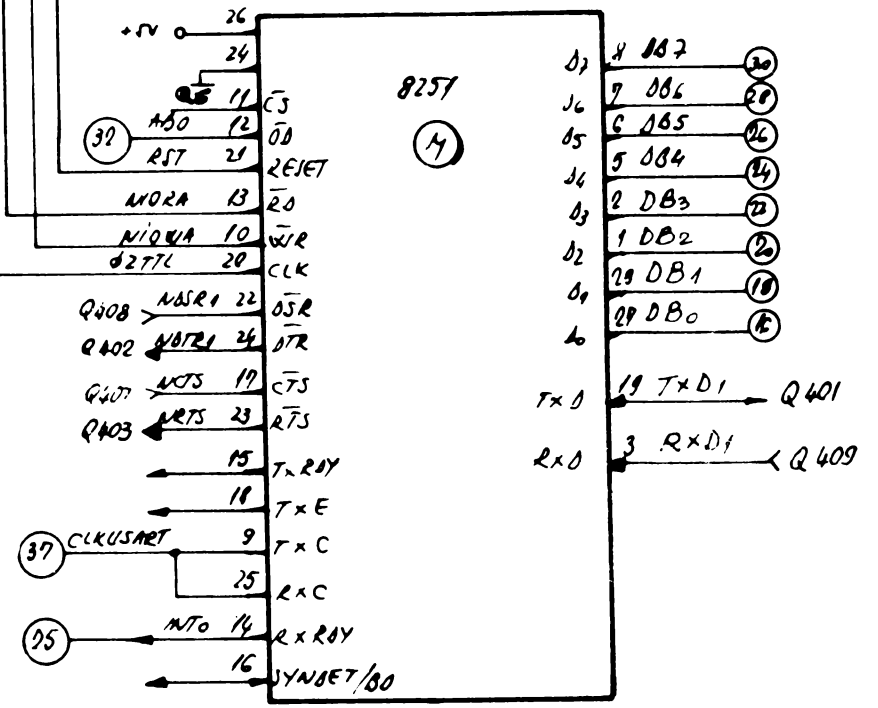 26
+5V
24
8251
M
11 CS
32 AB0 12 OD
RST 21 RESET
NIORA 13 RD
NIOWA 10 WR
Ø2TTL 20 CLK
Q408 NDSR1 22 DSR
Q402 NDTR1 24 DTR
NCTS 17 CTS
Q403 NRTS 23 RTS
15 TxRDY
18 TxE
37 CLKUSART 9 TxC
25 RxC
INT0 14 RxRDY
16 SYNDET/BD
D7 8 DB7 30
D6 7 DB6 28
D5 6 DB5 26
D4 5 DB4 24
D3 2 DB3 22
D2 1 DB2 20
D1 DB1 18
D0 DB0 16
TxD 19 TxD1 Q401
RxD 3 RxD1 Q409